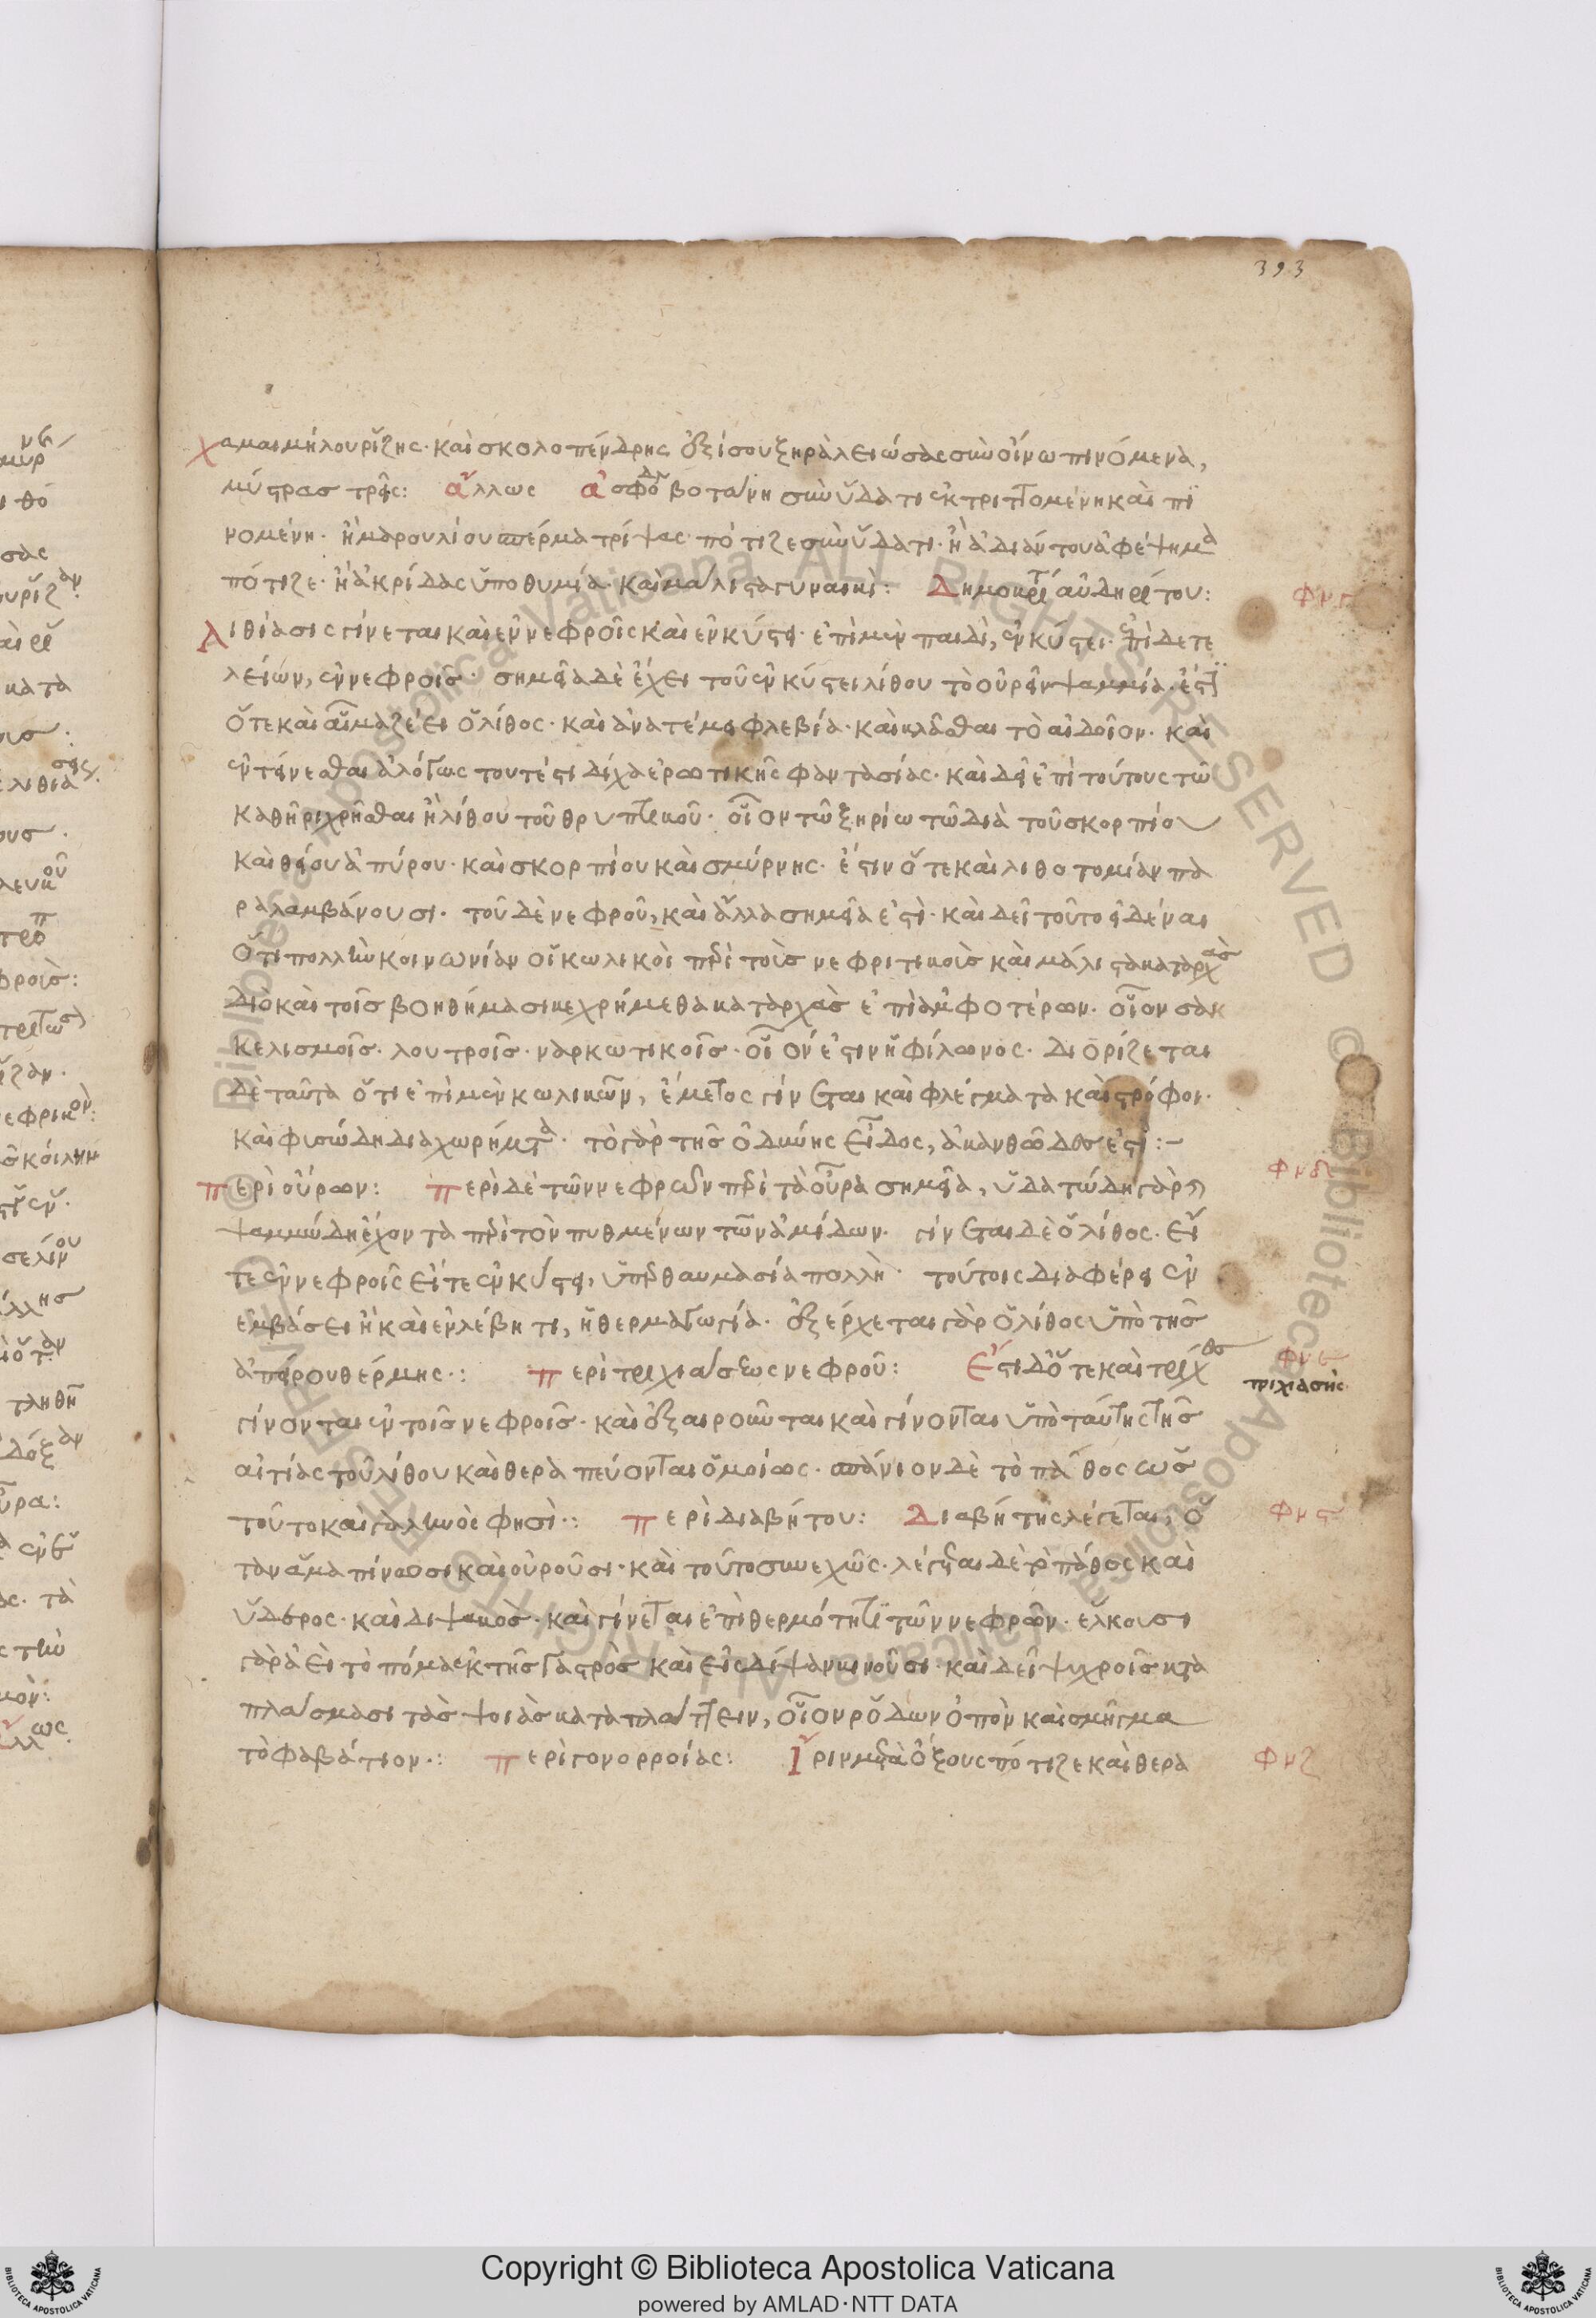 393
χαμαιμήλου ρίζης· καὶ σκολοπένδρης ἐξίσου ξηρὰ λειώσας σὺν οἴνω πινόμενα,
μύστρας τρεῖς: ἄλλως ἀσφοδελ βοτάνη σὺν ὕδατι ἐκτριπτομένη καὶ πι
νομένη· ἢ μαρουλίου σπέρμα τρίψας πότιζε σὺν ὕδατι· ἢ ἀδιάντου ἀφέψημα
πότιζε· ἢ ἀκρίδας ὑποθυμία· καὶ μάλιστα γυναικὶ: Δημοκρίτ ἀυδηρίτου:
Λιθίασις γίνεται καὶ ἐν νεφροῖς καὶ ἐν κύστει· ἐπὶ μὲν παιδὶ, ἐν κύστει· ἐπὶ δὲ τε
λείων, ἐν νεφροῖς· σημεῖα δὲ ἔχει τοῦ ἐν κύστει λίθου τὸ οὐρεῖν ψαμμία· ἔστι
ὅτε καὶ αἱμάζει ὁ λίθος· καὶ ἀνατέμει φλεβία· καὶ κλᾶσθαι τὸ αἰδοῖον· καὶ
ἐντείνεσθαι ἀλόγως τουτέστι δίχα ἐρωτικῆς φαντασίας· καὶ δεῖ ἐπὶ τούτους τῶ
καθῆρι χρῆσθαι ἢ λίθου τοῦ θρυπτικοῦ· οἷον τῶ ξηρίω τῶ διὰ τοῦ σκορπίου
καὶ θείου ἀπύρου· καὶ σκορπίου καὶ σμύρνης· ἔστιν ὅτε καὶ λιθοτομίαν πα
ραλαμβάνουσι· τοῦ δὲ νεφροῦ, καὶ ἄλλα σημεῖα ἐστὶ· καὶ δεῖ τοῦτο εἰδέναι
ὅτι πολλὴν κοινωνίαν οἱ κωλικοὶ περὶ τοῖς νεφριτικοῖς καὶ μάλιστα καταρχὰς
διὸ καὶ τοῖς βοηθήμασι κεχρήμεθα καταρχὰς ἐπὶ ἀμφοτέρων· οἷον σακ
κελισμοῖς· λουτροῖς· ναρκωτικοῖς· οἷον ἐστιν ἡ φίλωνος· διορίζεται
δὲ ταῦτα ὅτι ἐπὶ μὲν κωλικῶν, ἔμετος γίνεται καὶ φλέγματα καὶ στρόφοι·
καὶ φυσώδη διαχωρήματα· τὸ γὰρ τῆς ὀδύνης εἶδος, ἀκανθῶδες ἐστί:-
περὶ οὔρων: περὶ δὲ τῶν νεφρῶν περὶ τὰ οὖρα σημεῖα, ὑδατώδη γὰρ
ψαμμώδη ἔχοντα περὶ τὸν πυθμένων τῶν ἀμίδων· γίνεται δὲ ὁ λίθος· εἴ
τε ἐν νεφροῖς εἴτε ἐν κύστει, ὑπερθαυμασία πολλὴ· τούτοις διαφέρει ἐν
ἐμβάσει ἢ καὶ ἐν λέβητι, ἡ θερμαγωγία· ἐξέρχεται γὰρ ὁ λίθος ὑπὸ τῆς
ἀπείρου θέρμης·: περὶ τριχιάσεως νεφροῦ: Ἔστι δ' ὅτε καὶ τρίχες
τριχιασης
γίνονται ἐν τοῖς νεφροῖς· καὶ ἐξαιροῦνται καὶ γίνονται ὑπὸ ταύτης τῆς
αἰτίας τοῦ λίθου καὶ θεραπεύονται ὁμοίως· σπάνιον δὲ τὸ πάθος ὡς
τοῦτο καὶ γαληνὸς φησὶ·: περὶ διαβήτου: Διαβήτης λέγεται, ὅ
ταν ἅμα πίνωσι καὶ οὐροῦσι· καὶ τοῦτο συνεχῶς· λέγεται δὲ τὸ πάθος καὶ
ὕδερος· καὶ διψακὸς· καὶ γίνεται ἐπὶ θερμότητι τῶν νεφρῶν· ἕλκουσι
γὰρ ἀεὶ τὸ πόμα ἐκ τῆς γαστρὸς καὶ εἰς δίψαν κινοῦσι· καὶ δεῖ ψυχροῖς κατα
πλάσμασι τὰς ψοιὰς καταπλάττειν, οἷον ρόδων ὀπὸν καὶ σμῆγμα
τὸ φαβάτιον·: περὶ γονορροίας: Ἴριν μετὰ ὄξους πότιζε καὶ θερα
φνδ
φνε
φνς
φνζ
Copyright © Biblioteca Apostolica Vaticana
powered by AMLAD·NTT DATA